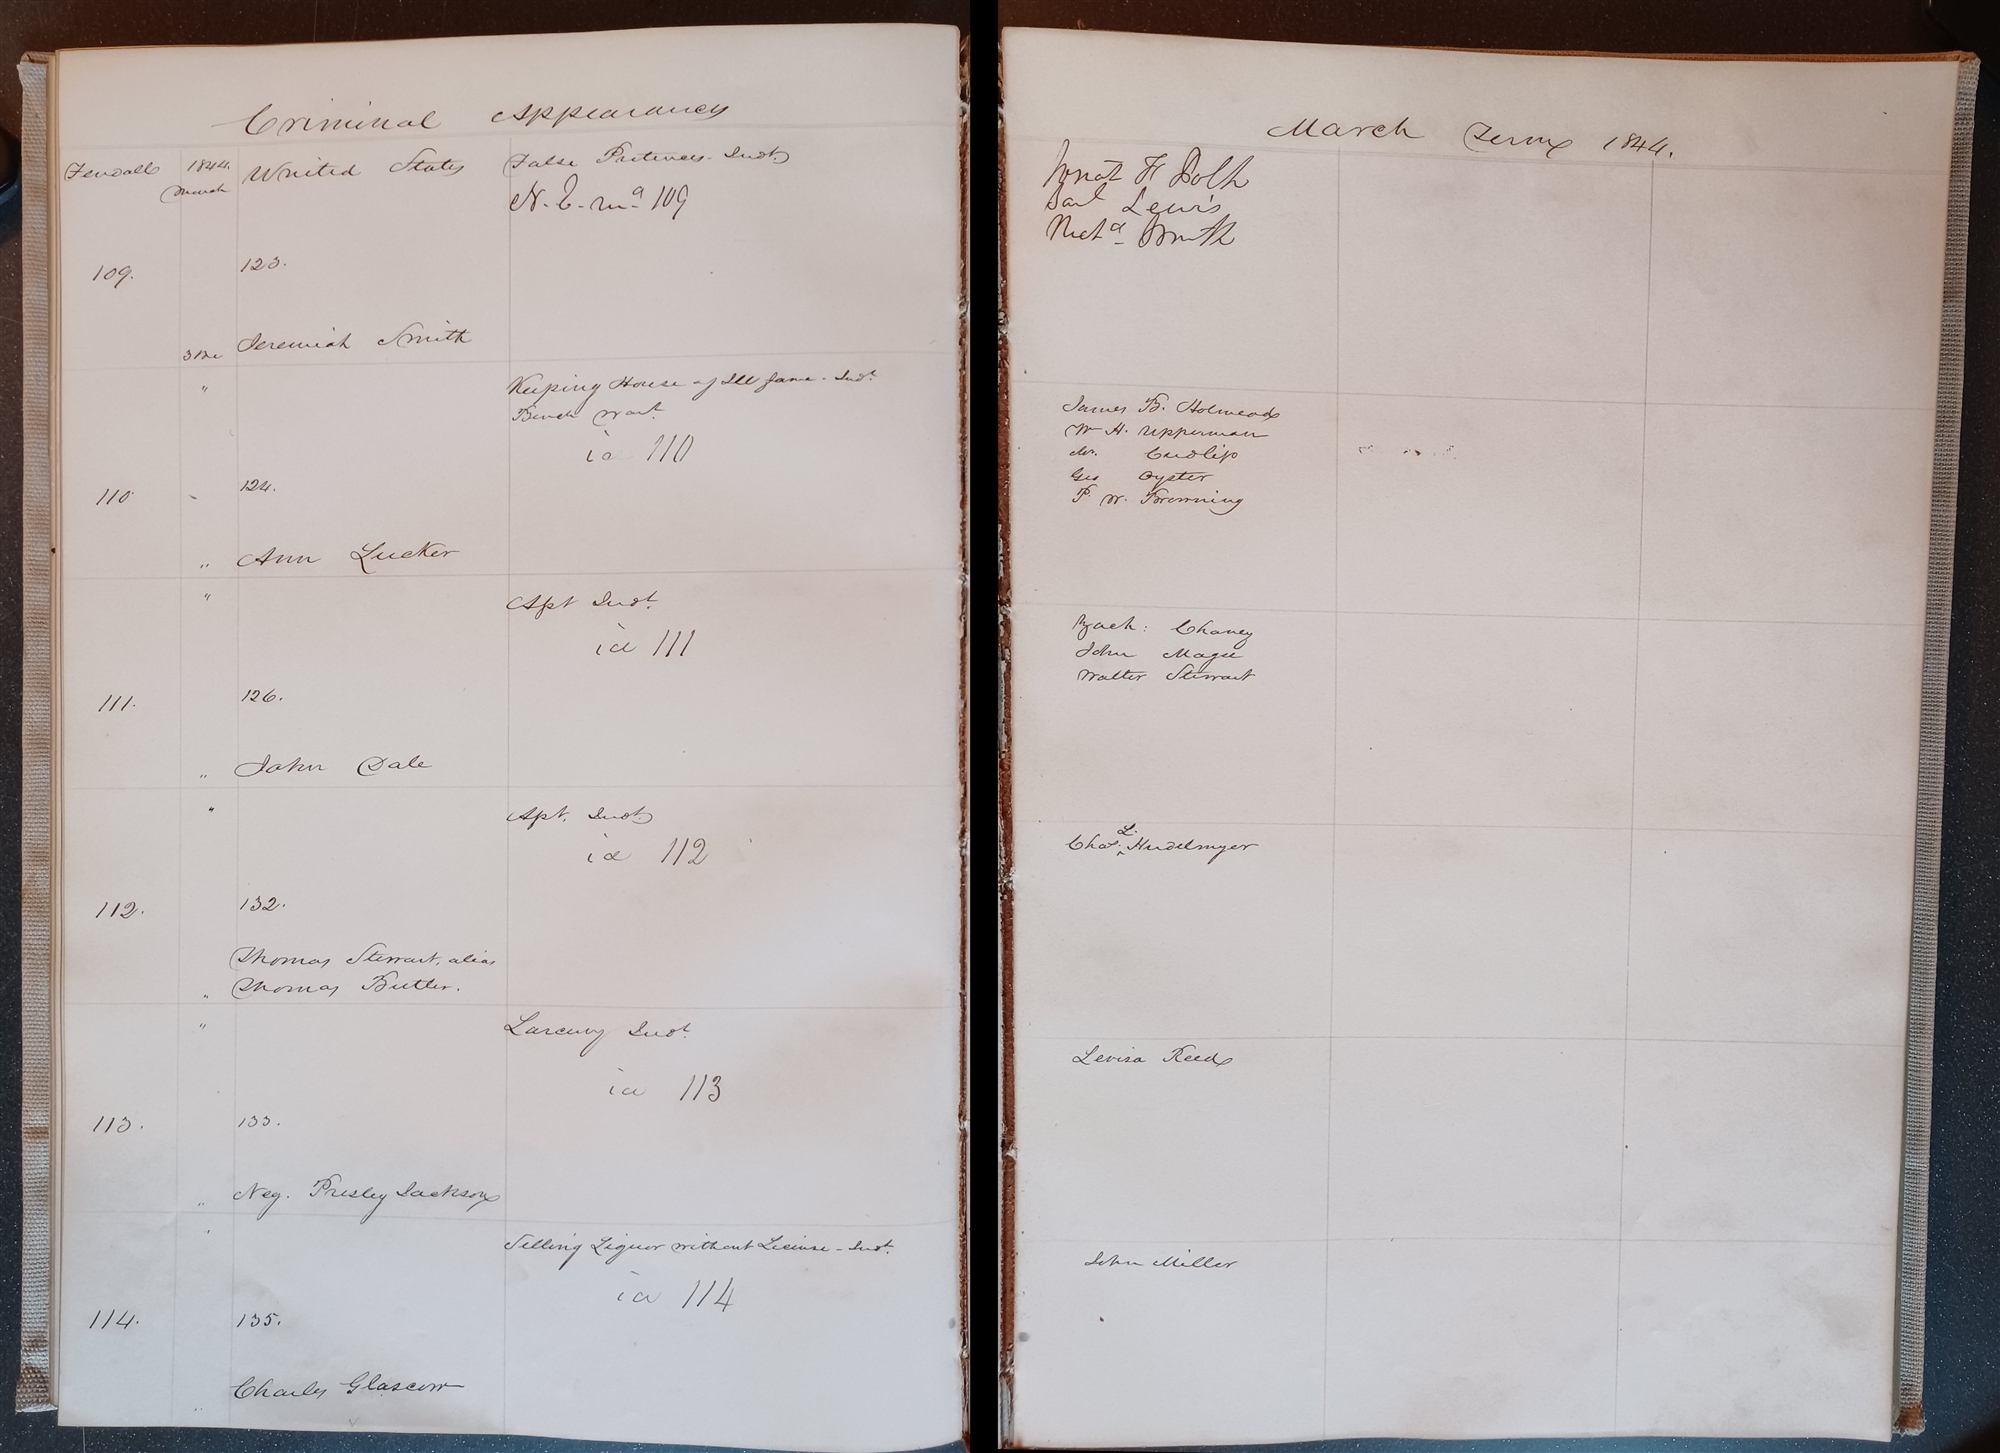 Criminal Appearances
Fendall 1844. United States False Pretences - Indt.
March N. C. ma 109
109. 123.
Jeremiah Smith
" Keeping House of Ill fame - Indt.
Bench Wart.
id 110
110 124.
" Ann Tucker
" Apt Indt.
id 111
111. 126.
" John Dale
" Apt. Indt.
id 112
112. 132.
Thomas Stewart, alias
" Thomas Butler.
" Larceny Indt.
id 113
113. 133.
" Neg. Presley Jackson
Selling Liquor without License - Indt.
id 114
114. 135.
" Charles Glascow
March Term 1844.
F
Saml Lewis
Smith
James B. Holmead
Wm H. Upperman
Cudlip
Geo Oyster
P. W. Browning
Zach: Chaney
John Magee
Walter Stewart
L.
Chas. Hudelmyer
Levisa Reed
John Miller